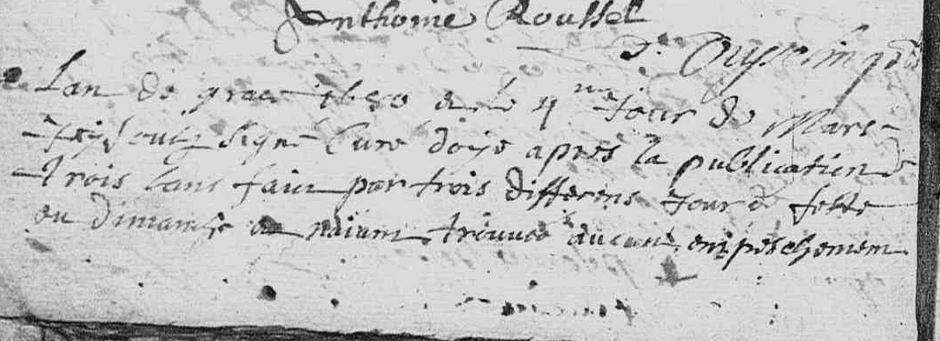 Anthoine Roussel
Lan de grace 1680 et le 4me Jour de Mars
Je soubz signé Curé doye apres la publication de
trois bans faitz par trois differens Jour de feste
ou dimanche et naiant trouvée aucun empeschement